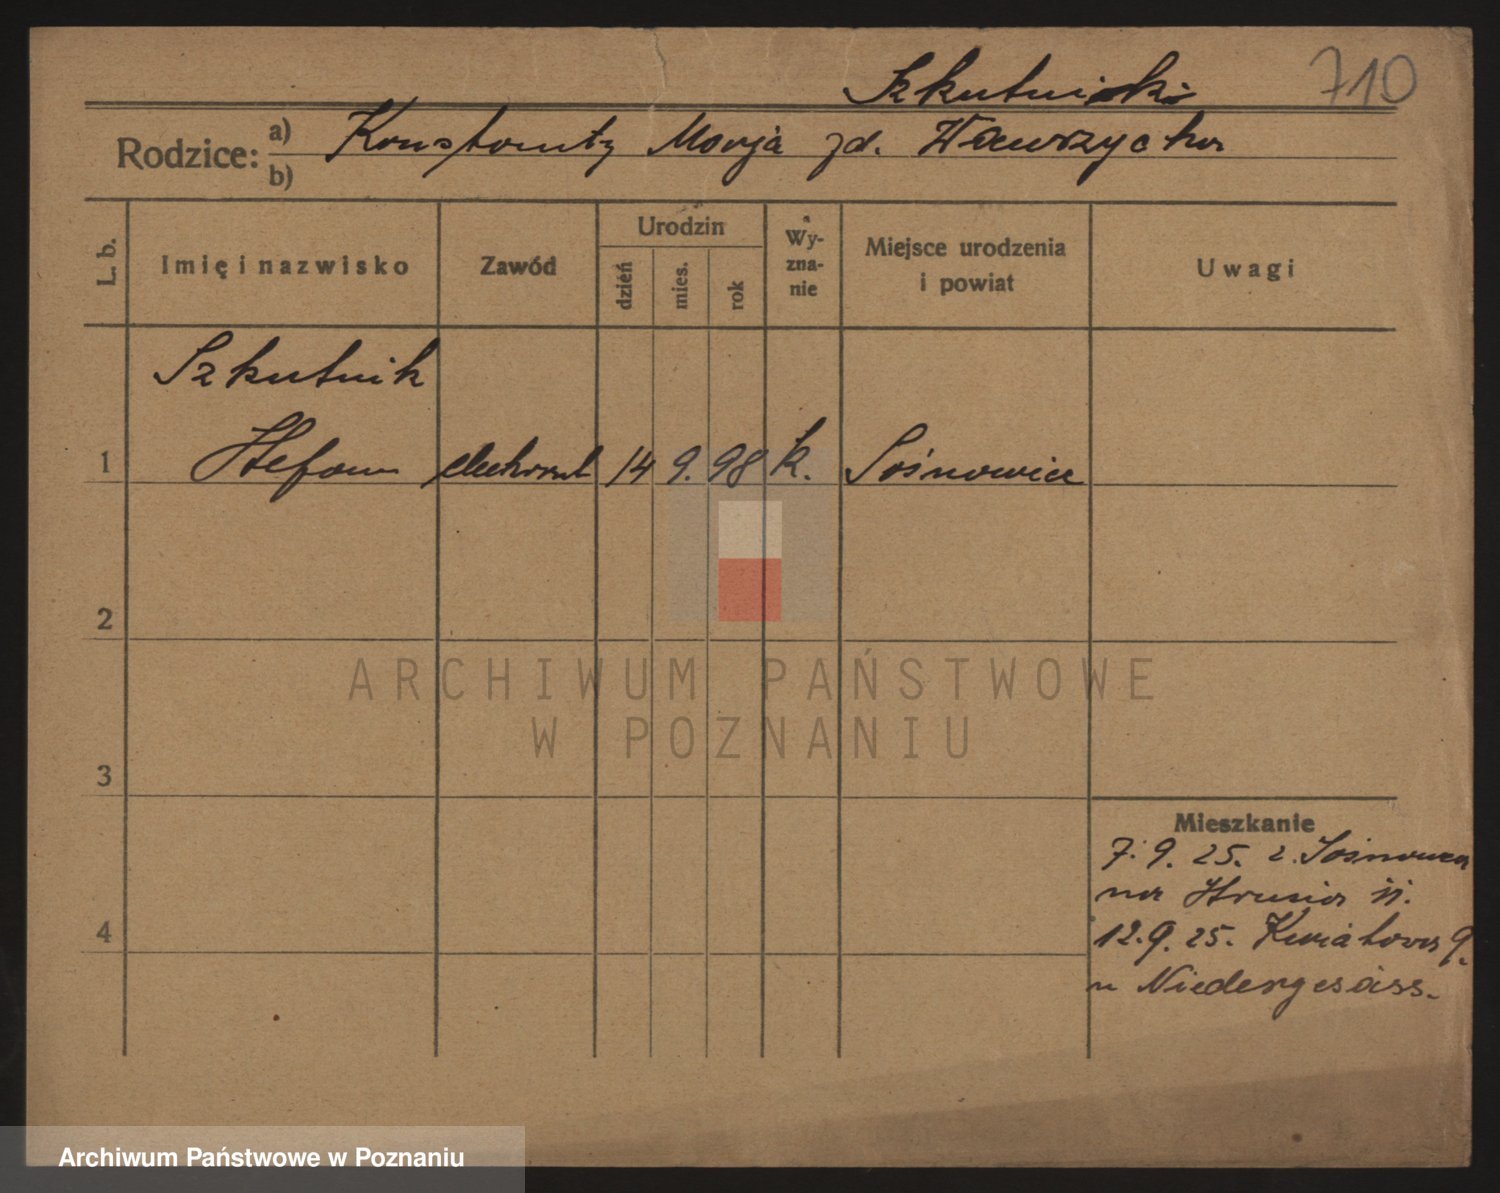 710
Szkutnicki
Rodzice: a) Konstanty Marja zd. Wawrzycka
b)
L. b.
Imię i nazwisko
Zawód
Urodzin
dzień
mies.
rok
Wy-
zna-
nie
Miejsce urodzenia
i powiat
Uwagi
Szkutnik
1 Stefan 14 9. 98 k. Sośnowice
2
3
4
Mieszkanie
7. 9. 25. z Sośnowca
na
12. 9. 25. Kwiatowa 9.
u Niedergesäss.
ARCHIWUM PAŃSTWOWE
W POZNANIU
Archiwum Państwowe w Poznaniu